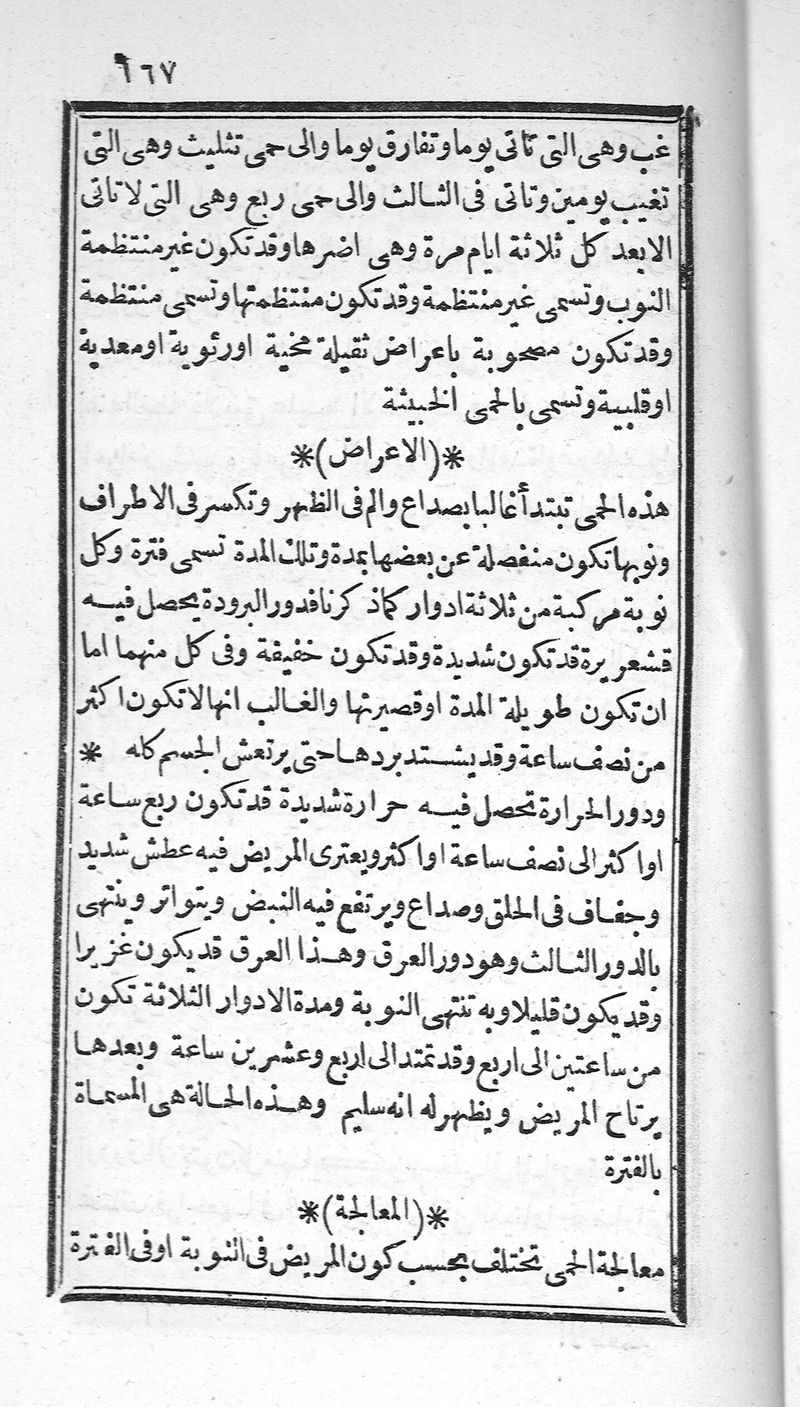 ١٦٧
غب وهى التى تاتى يوما وتفارق يوما والى حمى تثليث وهى التى
تغيب يومين وتاتى فى الثالث والى حمى ربع وهى التى لا تاتى
الا بعد كل ثلاثة ايام مرة وهى اضرها وقد تكون غير منتظمة
النوب وتسمى غير منتظمة وقد تكون منتظمتها وتسمى منتظمة
وقد تكون مصحوبة باعراض ثقيلة مخية او رئوية او معدية
او قلبية وتسمى بالحمى الخبيثة
*(الاعراض)*
هذه الحمى تبتدأ غالبا بصداع والم فى الظهر وتكسر فى الاطراف
ونوبها تكون منفصلة عن بعضها بمدة وتلك المدة تسمى فترة وكل
نوبة مركبة من ثلاثة ادوار كما ذكرنا فدور البرودة يحصل فيه
قشعريرة قد تكون شديدة وقد تكون خفيفة وفى كل منهما اما
ان تكون طويلة المدة او قصيرتها والغالب انها لا تكون اكثر
من نصف ساعة وقد يشتد بردها حتى يرتعش الجسم كله *
ودور الحرارة تحصل فيه حرارة شديدة قد تكون ربع ساعة
او اكثر الى نصف ساعة او اكثر ويعترى المريض فيه عطش شديد
وجفاف فى الحلق وصداع ويرتفع فيه النبض ويتواتر وينتهى
بالدور الثالث وهو دور العرق وهذا العرق قد يكون غزيرا
وقد يكون قليلا وبه تنتهى النوبة ومدة الادوار الثلاثة تكون
من ساعتين الى اربع وقد تمتد الى اربع وعشرين ساعة وبعدها
يرتاح المريض ويظهر له انه سليم وهذه الحالة هى المسماة
بالفترة
*(المعالجة)*
معالجة الحمى تختلف بحسب كون المريض فى النوبة او فى الفترة